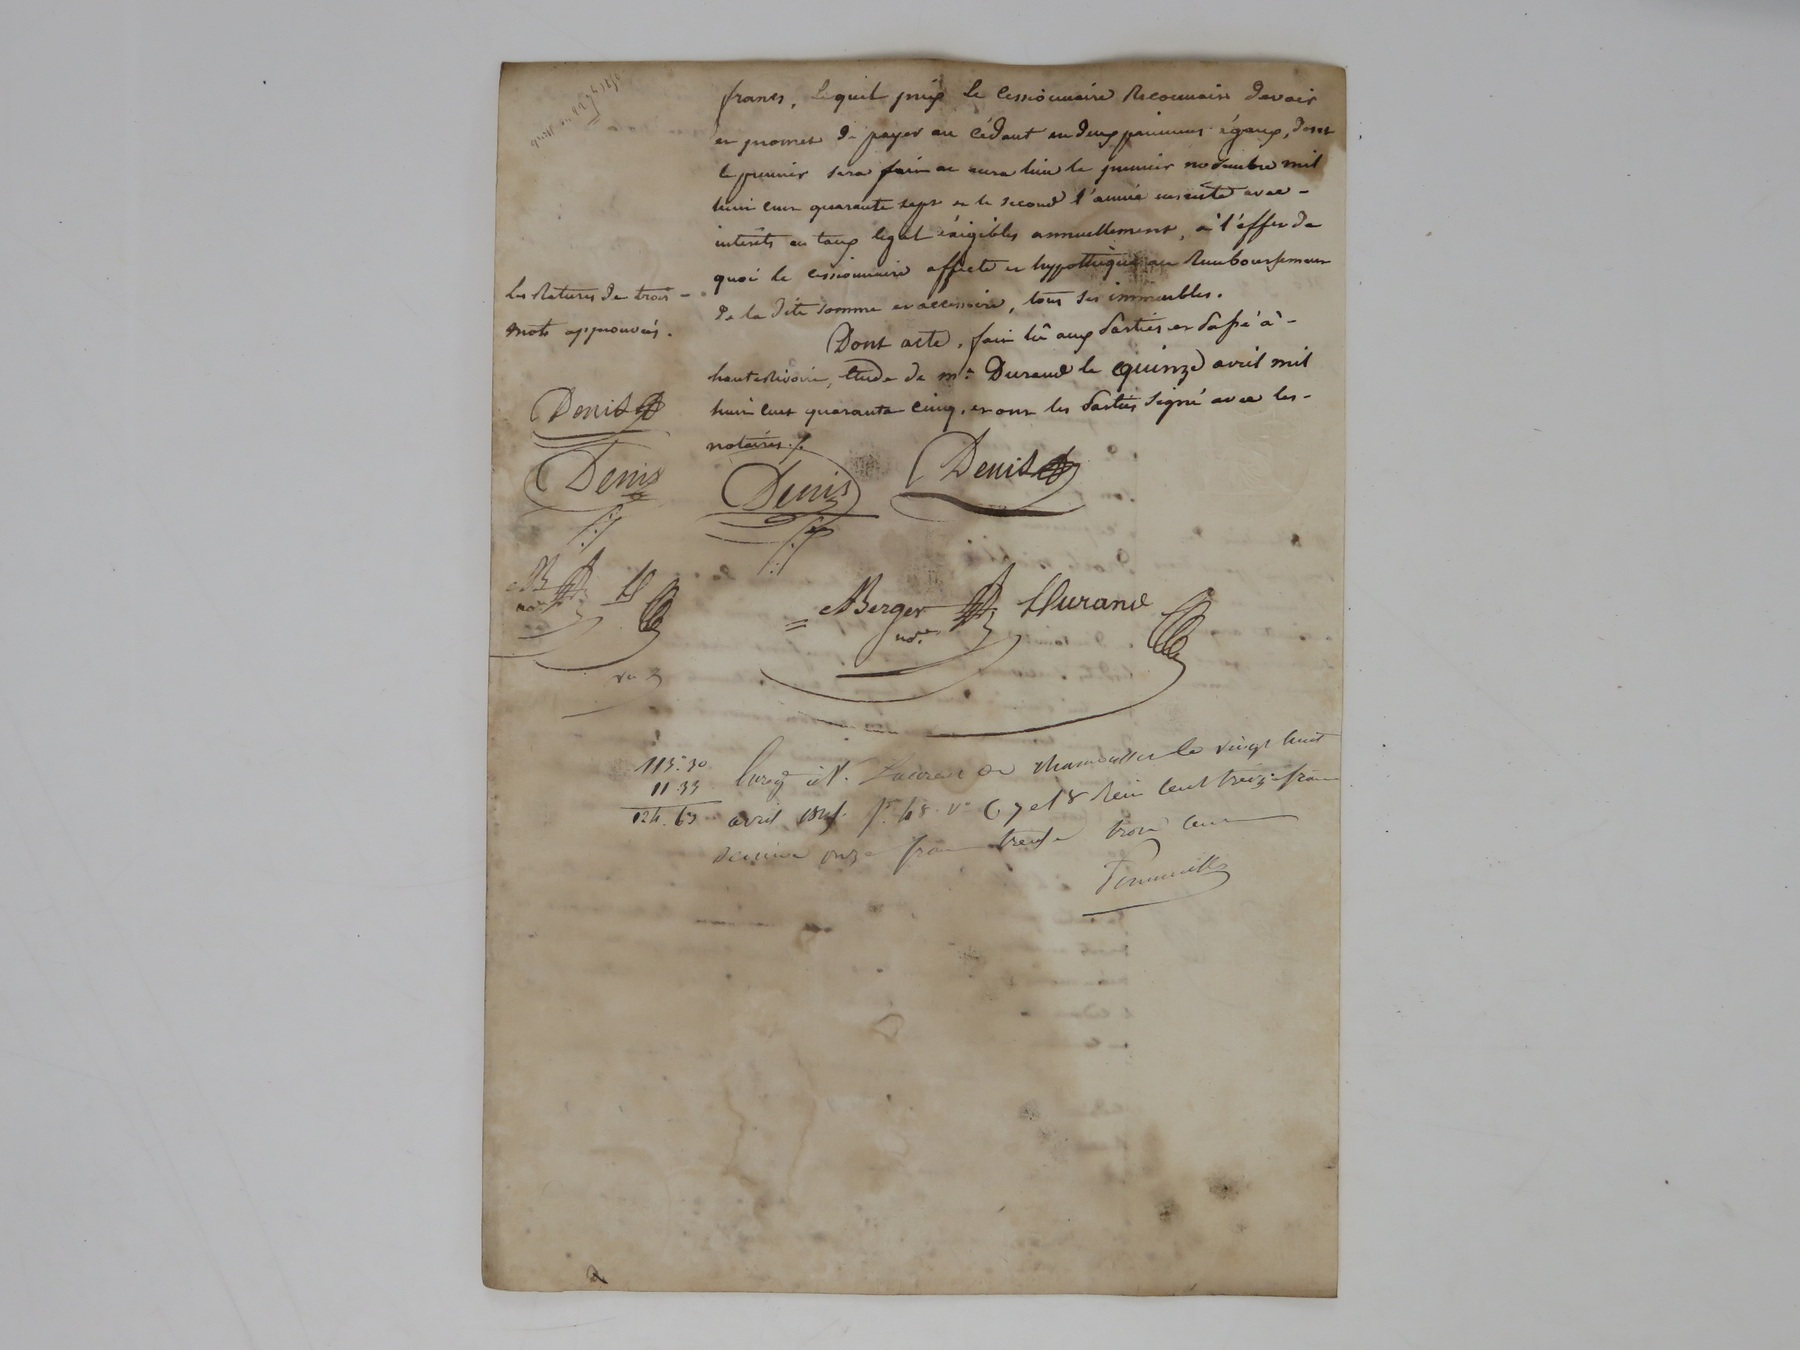 francs, lequel prix le cessionnaire Reconnait devoir
et promet de payer au Cédant en deux paiemens égaux, dont
le premier sera fait et aura lieu le premier novembre mil
huit cent quarante sept et le second l'année ensuite avec -
intérêts au taux legal éxigibles annuellement, à l'effet de
quoi le cessionnaire affecte et hypothèque au Remboursement
de la dite somme et accessoire, tous ses immeubles.
Dont acte, fait lû aux Parties et Passé à -
hauterivoire, Etude de me Durand le quinze avril mil
huit cent quarante cinq, et ont les Parties signé avec les -
notaires./.
Les Ratures de trois -
mots approuvés.
Denis
Denis
Denis
Denis
B
not
D
Berger
not.
Durand
113.30
11.33
124.63
Enreg à St. Laurent de chamousset le vingt huit
avril 1845. f° 48. v° C 7 et 8 Reçu cent treize francs
décime onze francs trente trois cent